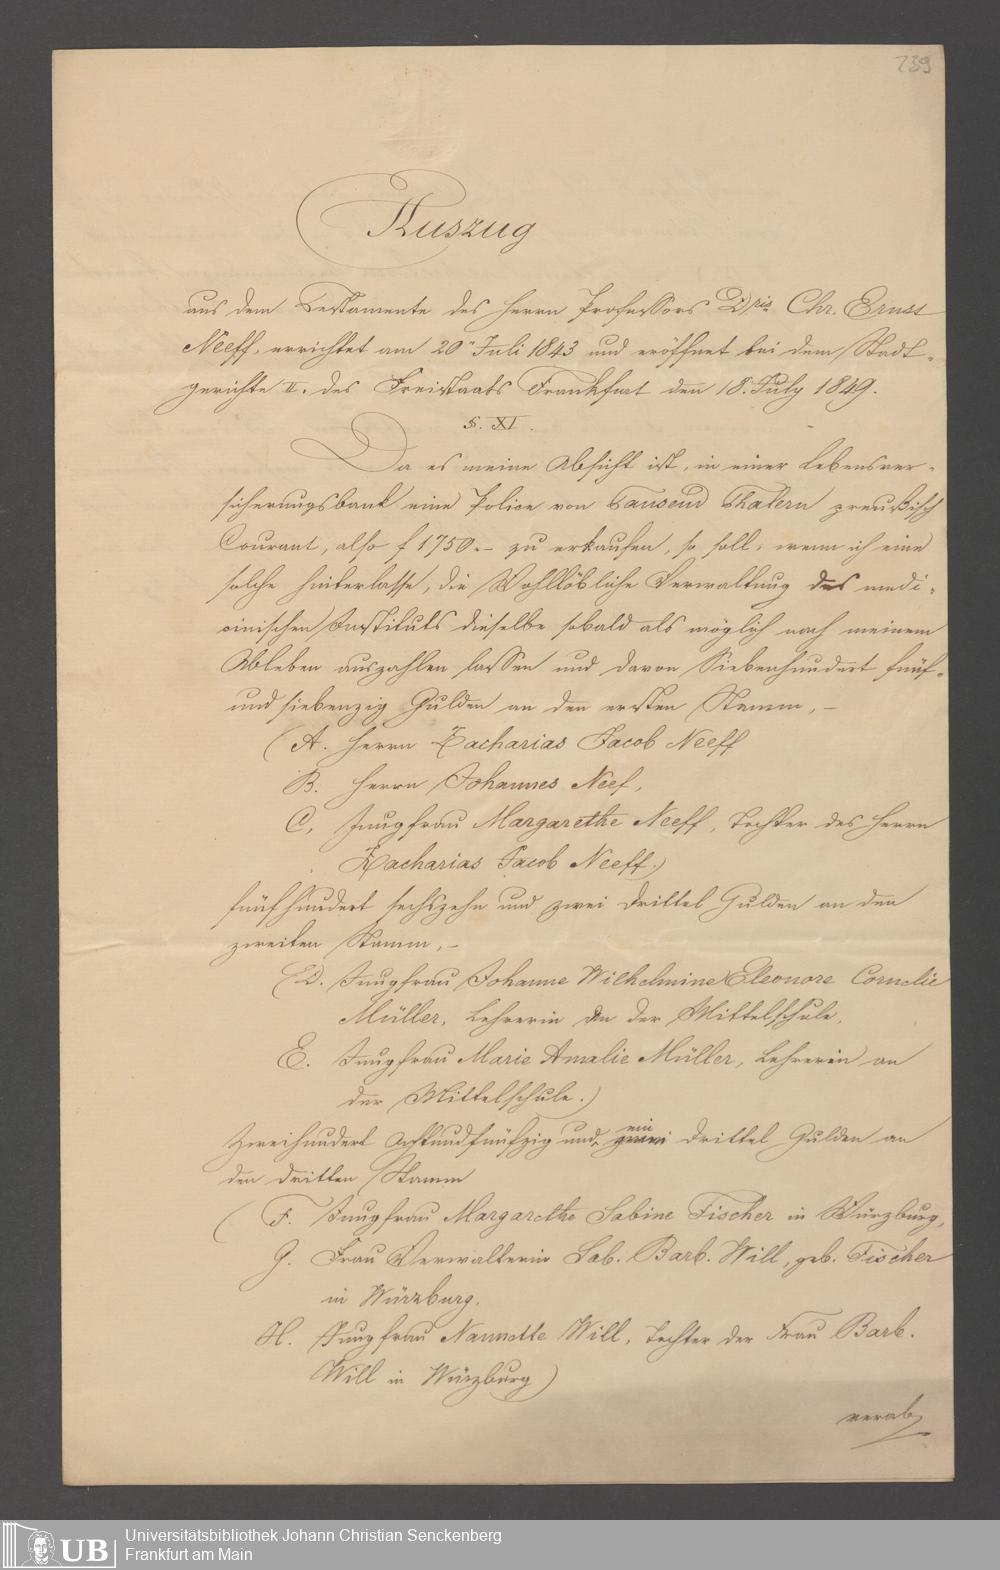 239
Auszug
aus dem Testamente des Herrn Professors Dris Chr. Ernst
Neeff, errichtet am 20n Juli 1843 und eröffnet bei dem Stadt-
gerichte II. des Freistaats Frankfurt den 18. July 1849.
§. XI.
Da es meine Absicht ist, in einer Lebensver-
sicherungsbank eine Police von Tausend Thalern preußisch
Courant, also f 1750.- zu erkaufen, so soll, wenn ich eine
solche hinterlasse, die Wohllöbliche Verwaltung des medi-
cinischen Instituts dieselbe sobald als möglich nach meinem
Ableben auszahlen lassen und davon Siebenhundert fünf-
und siebenzig Gulden an den ersten Stamm, -
(A. Herrn Zacharias Jacob Neeff
B. Herrn Johannes Neef,
C, Jungfrau Margarethe Neeff, Tochter des Herrn
Zacharias Jacob Neeff.)
fünfhundert sechszehn und zwei Drittel Gulden an den
zweiten Stamm, -
(D. Jungfrau Johanne Wilhelmine Eleonore Cornelie
Müller, Lehrerin an der Mittelschule,
E. Jungfrau Marie Amalie Müller, Lehrerin an
der Mittelschule.)
Zweihundert Achtundfünfzig und ein Drittel Gulden an
den dritten Stamm
(F. Jungfrau Margarethe Sabine Fischer in Würzburg,
G. Frau Verwalterin Sab. Barb. Will, geb. Fischer
in Würzburg,
H. Jungfrau Nannette Will, Tochter der Frau Barb.
Will in Würzburg)
verab
UB
Universitätsbibliothek Johann Christian Senckenberg
Frankfurt am Main